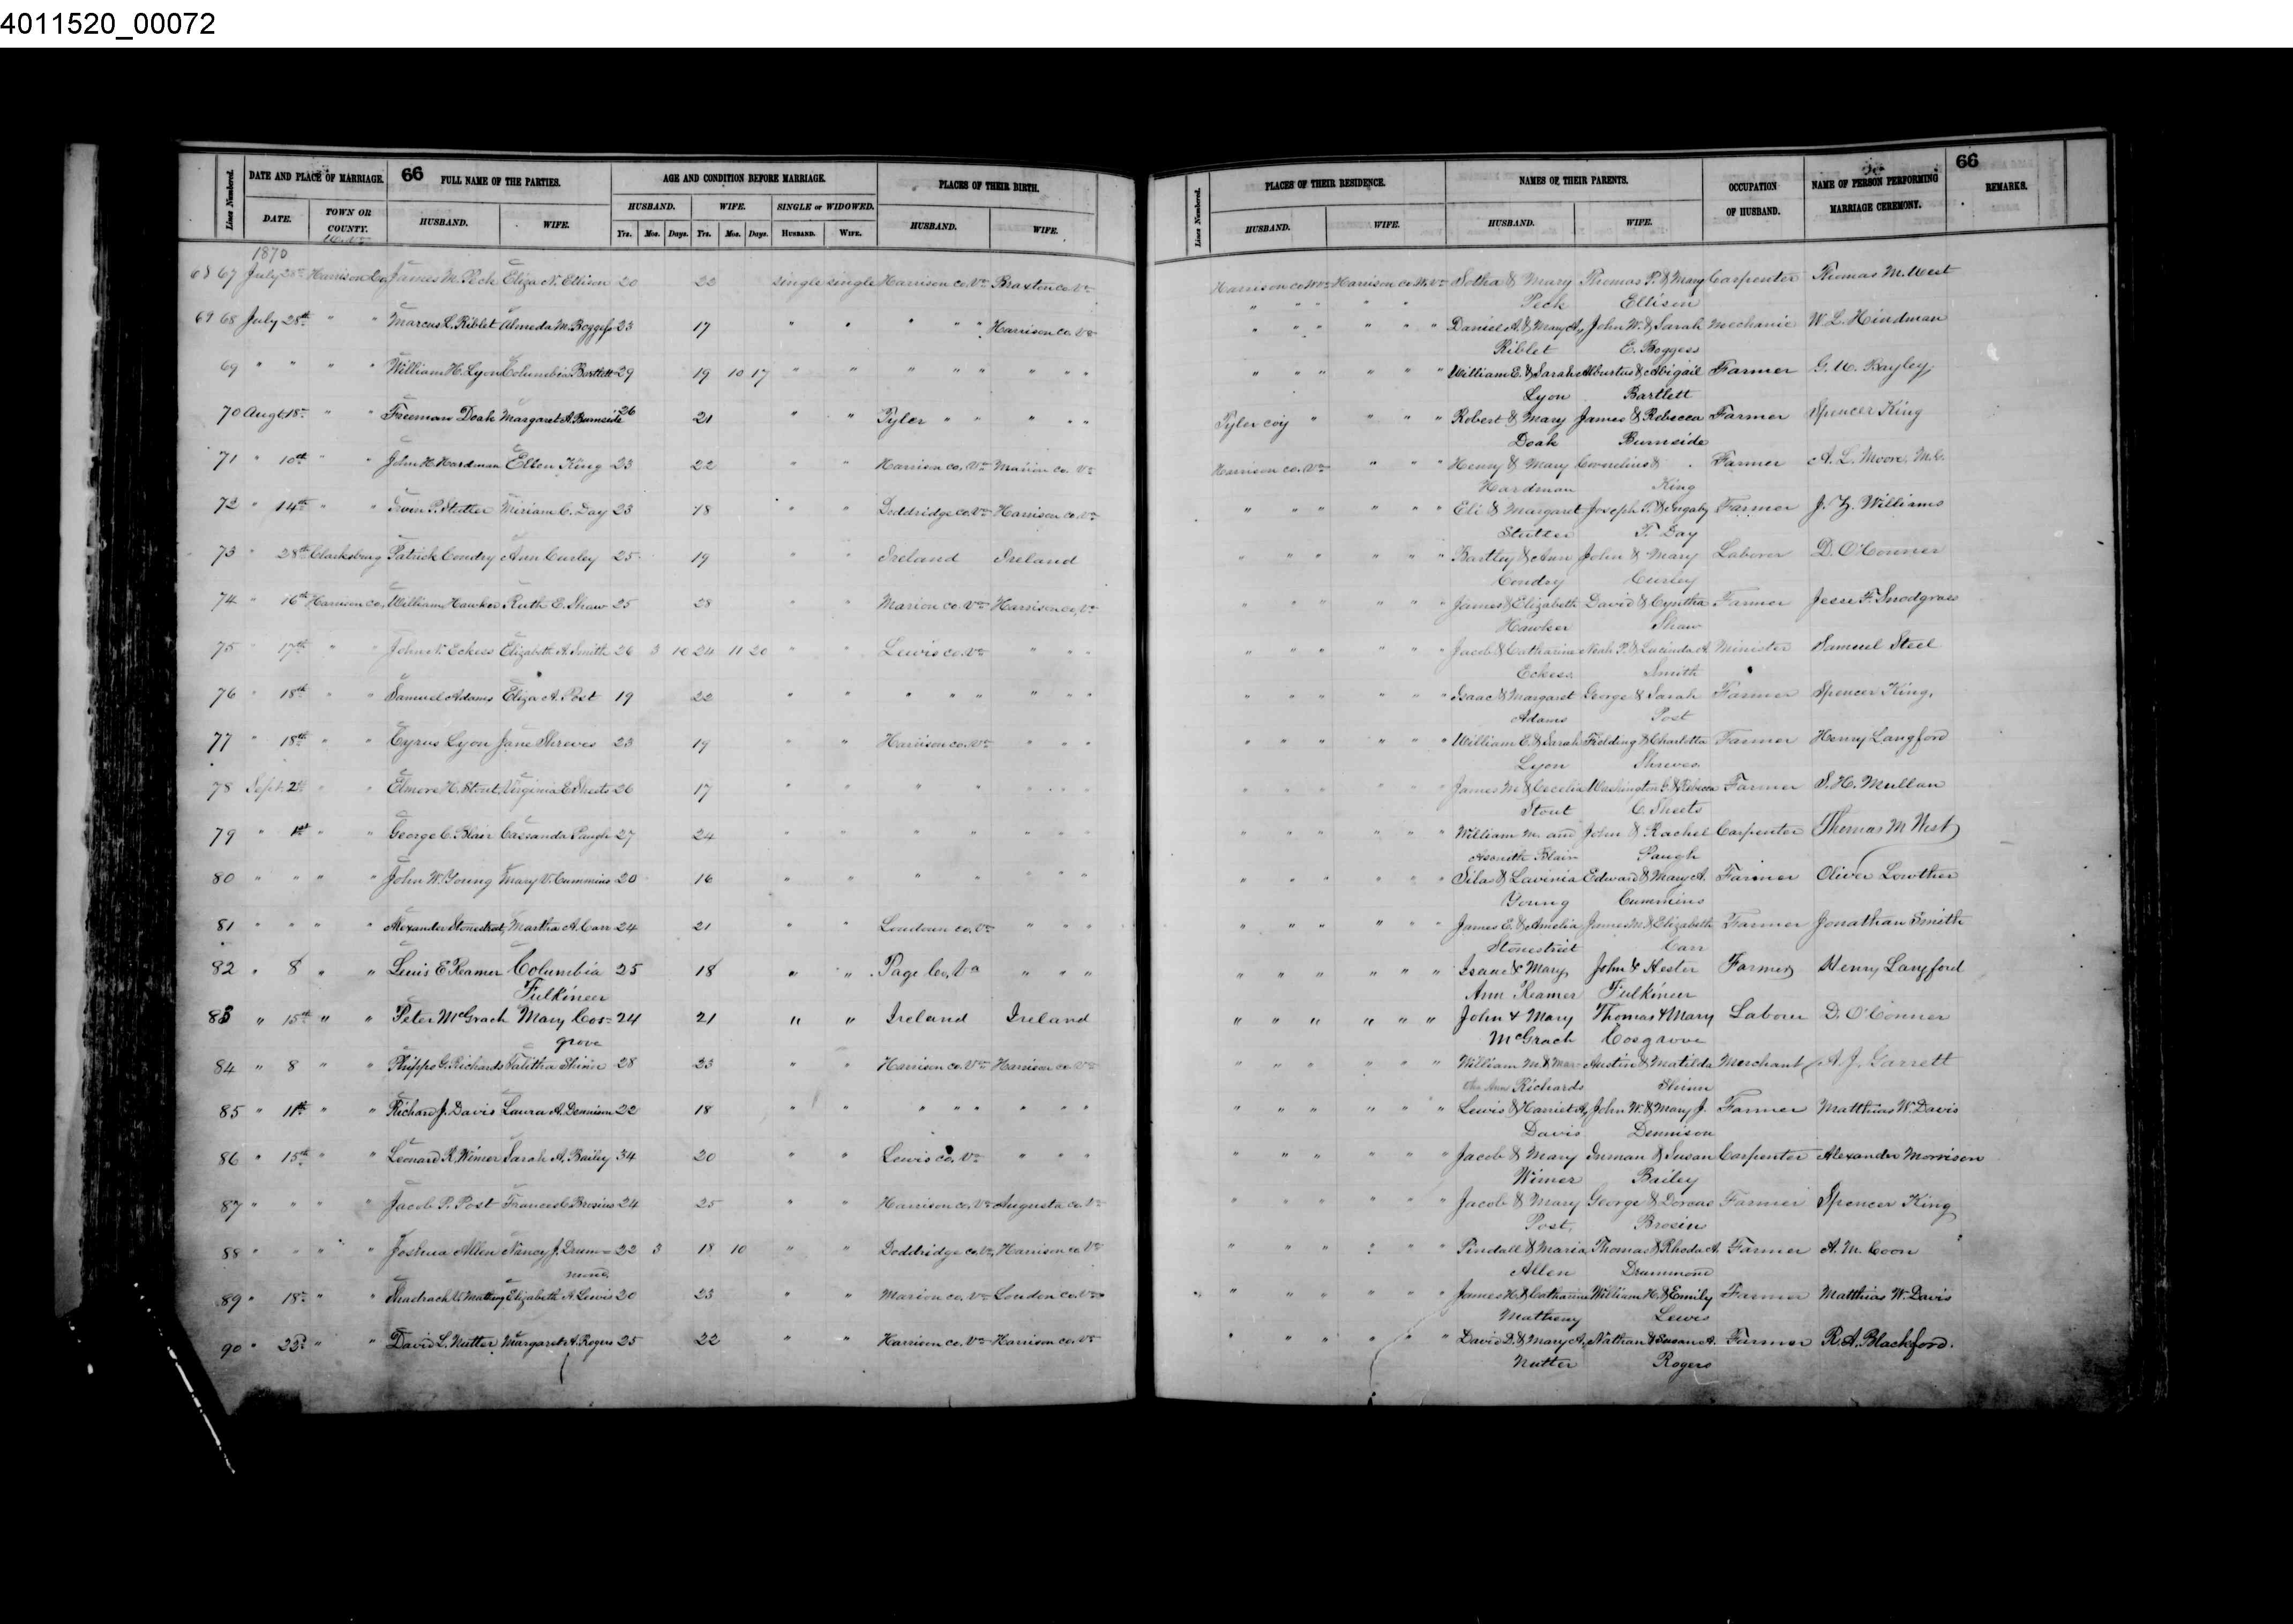 4011520_00072
66
66
Lines Numbered.
DATE AND PLACE OF MARRIAGE.
FULL NAME OF THE PARTIES.
AGE AND CONDITION BEFORE MARRIAGE.
PLACES OF THEIR BIRTH.
Lines Numbered.
PLACES OF THEIR RESIDENCE.
NAMES OF THEIR PARENTS.
OCCUPATION OF HUSBAND.
NAME OF PERSON PERFORMING MARRIAGE CEREMONY.
REMARKS.
DATE. TOWN OR COUNTY. HUSBAND. WIFE. HUSBAND. WIFE. SINGLE or WIDOWED. HUSBAND. WIFE. HUSBAND. WIFE. HUSBAND. WIFE.
Yrs. Mos. Days. Yrs. Mos. Days. HUSBAND. WIFE.
1870
68 67 July 28th Harrison Co James M. Peck Eliza N. Ellison 20 22 single single Harrison co. Va Braxton co. Va Harrison co W Va Harrison co. W. Va Sotha & Mary Thomas P. & Mary Carpenter Thomas M. West
" " " " " Peck Ellison
69 68 July 28th " " Marcus L. Riblet Almeda M. Boggess 23 17 " " " " " Harrison co. Va " " " " " " Daniel A. & Mary A. John W. & Sarah Mechanic W. L. Hindman
Riblet E. Boggess
69 " " " " William H. Lyon Columbia Bartlett 29 19 10 17 " " " " " " " " " " " " " " William E. & Sarah Alburtus & Abigail Farmer G. W. Bayley
Lyon Bartlett
70 Augt 18th " " Freeman Doak Margaret A. Burnside 26 21 " " Tyler " " " " " Tyler coy " " " " Robert & Mary James & Rebecca Farmer Spencer King
Doak Burnside
71 " 10th " " John H. Hardman Ellen King 23 22 " " Harrison co. Va Marion co. Va Harrison co. Va " " " Henry & Mary Cornelius & Farmer A. L. Moore, M. G.
Hardman King
72 " 14th " " P. Stutler Miriam C. Day 23 18 " " Doddridge co. Va Harrison co. Va " " " " " " Eli & Margaret Joseph T. & Farmer J. Williams
Stutler T. Day
73 " 28th Clarksburg Patrick Condry Ann Curley 25 19 " " Ireland Ireland " " " " " " Bartley & Ann John & Mary Laborer D. O'Conner
Condry Curley
74 " 16th Harrison co. William Hawker Ruth E. Shaw 25 28 " " Marion co. Va Harrison co. Va " " " " " " James & Elizabeth David & Cyntha Farmer Jesse F. Snodgrass
Hawker Shaw
75 " 17th " " John N. Eckess Elizabeth A. Smith 26 3 10 24 11 20 " " Lewis co. Va " " " " " " " " " Jacob & Catharine Noah P. & Lucinda A Minister Samuel Steel
Eckess Smith
76 " 18th " " Samuel Adams Eliza A. Post 19 22 " " " " " " " " " " " " " " Isaac & Margaret George & Sarah Farmer Spencer King.
Adams Post
77 " 18th " " Cyrus Lyon Jane Shreves 23 19 " " Harrison co. Va " " " " " " " " " William E. & Sarah Fielding & Charlotta Farmer Henry Langford
Lyon Shreves
78 Sept. " " Elmore H. Stout Virginia E. Sheets 26 17 " " " " " " " " " " " " James M & Cecelia Washington G. & Rebecca Farmer S. H. Mullan
Stout C. Sheets
79 " 1st " " George C. Blair Cassanda Paugh 27 24 " " " " " " " " " " " " " " William M. and John & Rachel Carpenter Thomas M West
Blair Paugh
80 " " " " John W. Young Mary V. Cummins 20 16 " " " " " " " " " " " " " " Silas & Lavinia Edward & Mary A. Farmer Oliver Lowther
Young Cummins
81 " " " " Alexander Stonestreet Martha A. Carr 24 21 " " Loudoun co. Va " " " " " " " " " James E. & Amelia James M. & Elizabeth Farmer Jonathan Smith
Stonestreet Carr
82 " 8 " " Lewis E Reamer Columbia 25 18 " " Page Co, Va " " " " " " " " " Isaac & Mary John & Hester Farmer Henry Langford
Fulkineer Ann Reamer Fulkineer
83 " 15th " " Peter McGrach Mary Cos= 24 21 " " Ireland Ireland " " " " " " John & Mary Thomas & Mary Laborer D. O'Conner
grove McGrach Cosgrove
84 " 8 " " Phipps G. Richards Talitha Shinn 28 23 " " Harrison co. Va Harrison co. Va " " " " " " William M. & Mar= Austin & Matilda Merchant A. J. Garrett
tha Ann Richards Shinn
85 " 11th " " Richard J. Davis Laura A. Dennison 22 18 " " " " " " " " " " " " " " Lewis & Harriet A. John W. & Mary J. Farmer Matthias W. Davis
Davis Dennison
86 " 15th " " Leonard R. Wimer Sarah A. Bailey 34 20 " " Lewis co. Va " " " " " " " " " Jacob & Mary Inman & Susan Carpenter Alexander Morrison
Wimer Bailey
87 " " " " Jacob P. Post Frances C. Brosius 24 25 " " Harrison co. Va Augusta co. Va " " " " " " Jacob & Mary George & Dorcas Farmer Spencer King
Post, Brosius
88 " " " " Joshua Allen Nancy J. Drum= 22 3 18 10 " " Doddridge co. Va, Harrison co Va " " " " " " Pindall & Maria Thomas & Rhoda A. Farmer A. M. Coon
mond Allen Drummond
89 " 18th " " Shadrach V. Matheny Elizabeth A. Lewis 20 23 " " Marion co. Va Loudon co. Va " " " " " " James H. & Catharine William H. & Emily Farmer Matthias W. Davis
Matheny Lewis
90 " 23d " " David L. Nutter Margaret A. Rogers 25 22 " " Harrison co. Va Harrison co. Va " " " " " " David D. & Mary A. Nathan & Susan A. Farmer R. A. Blackford.
Nutter Rogers